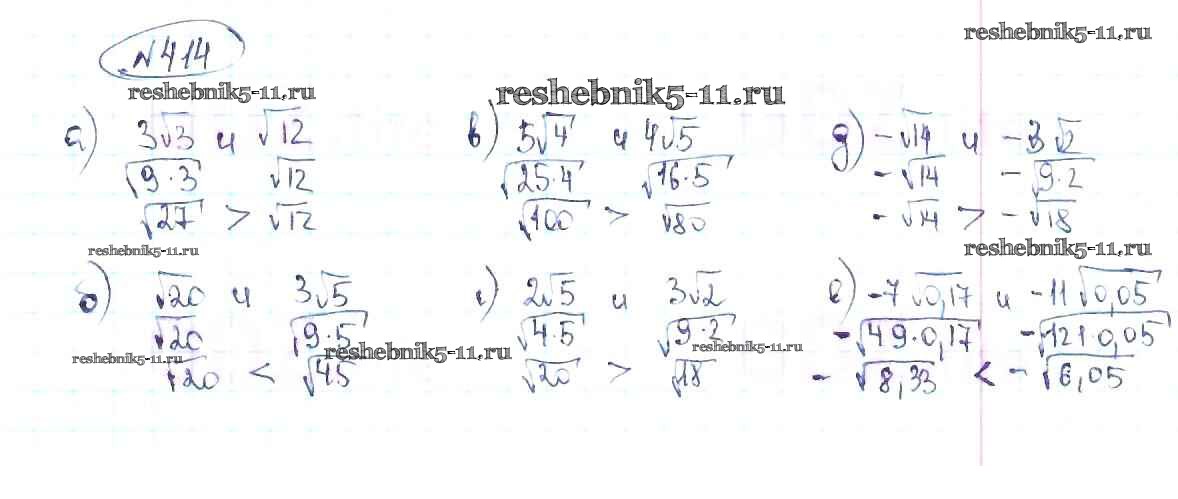 reshebnik5-11.ru
№414
reshebnik5-11.ru
reshebnik5-11.ru
а) 3√3 и √12
√9·3 √12
√27 > √12
в) 5√4 и 4√5
√25·4 √16·5
√100 > √80
д) -√14 и -3√2
-√14 -√9·2
-√14 > -√18
reshebnik5-11.ru
reshebnik5-11.ru
б) √20 и 3√5
√20 √9·5
√20 < √45
reshebnik5-11.ru
reshebnik5-11.ru
г) 2√5 и 3√2
√4·5 √9·2
√20 > √18
reshebnik5-11.ru
е) -7√0,17 и -11√0,05
-√49·0,17 -√121·0,05
-√8,33 < -√6,05